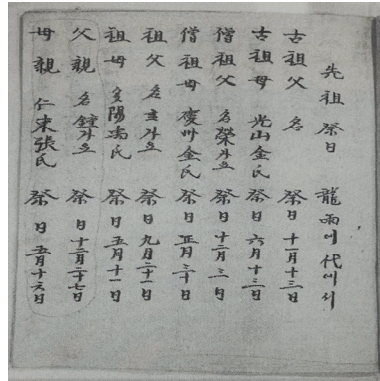 先祖祭日 龍雨에 代에서
古祖父 名 祭日 十一月十三日
古祖母 光山金氏 祭日 六月十三日
僧祖父 名榮사요 祭日 十二月三日
僧祖母 慶州金氏 祭日 正月三十日
祖父 名 사요 祭日 九月二十一日
祖母 陽 氏 祭日 五月十一日
父親 名鐘사요 祭日 十二月二十七日
母親 仁東張氏 祭日 五月十六日